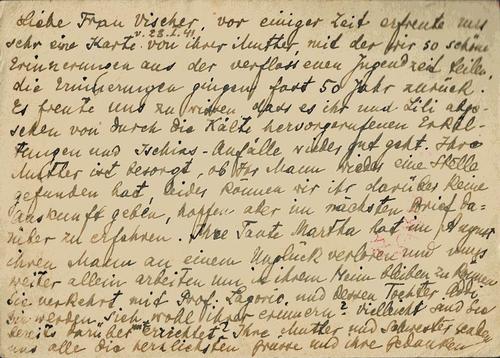 Liebe Frau Vischer, vor einiger Zeit erfreute uns
sehr eine Karte v. 28.1.41. von ihrer Mutter, mit der wir so schöne
Erinnerungen aus der verflossenen Jugendzeit teilen
die Erinnerungen gingen fast 50 Jahr zurück.
Es freute uns zu wissen dass es ihr und Lili abge-
sehen von durch die Kälte hervorgerufenen Erkäl-
tungen und Ischias-Anfälle wieder gut geht. Ihre
Mutter ist besorgt, ob Ihr Mann wieder eine Stelle
gefunden hat leider können wir ihr darüber keine
Auskunft geben, hoffen aber im nächsten Brief da-
rüber zu erfahren. Ihre Tante Martha hat im August
ihren Mann an einem Unglück verloren und muss
weiter allein arbeiten um in ihrem Heim bleiben zu können
Sie verkehrt mit Prof. Lagorio und dessen Tochter
Sie werden sich wohl ihrer erinnern? vielleicht sind Sie
bereits darüber Ihre Mutter und Schwester
uns alle die herzlichsten Grüsse und ihre Gedanken